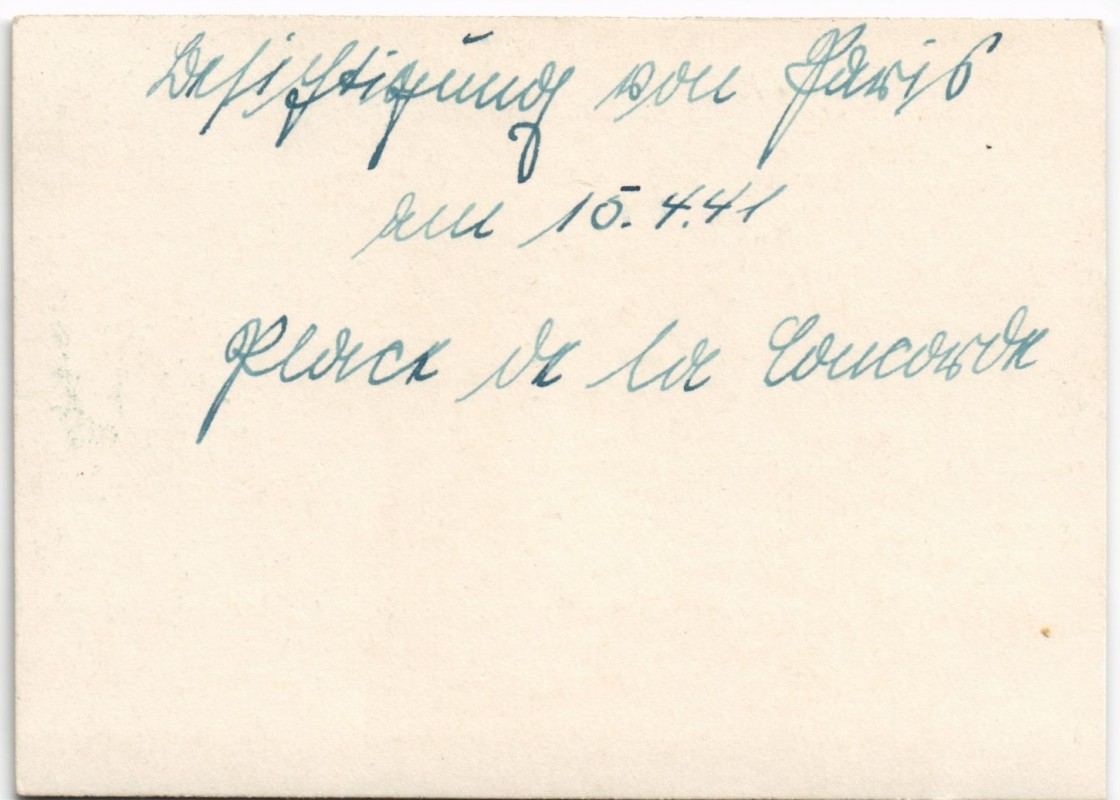 Besichtigung von Paris
am 15.4.41
Place de la Concorde